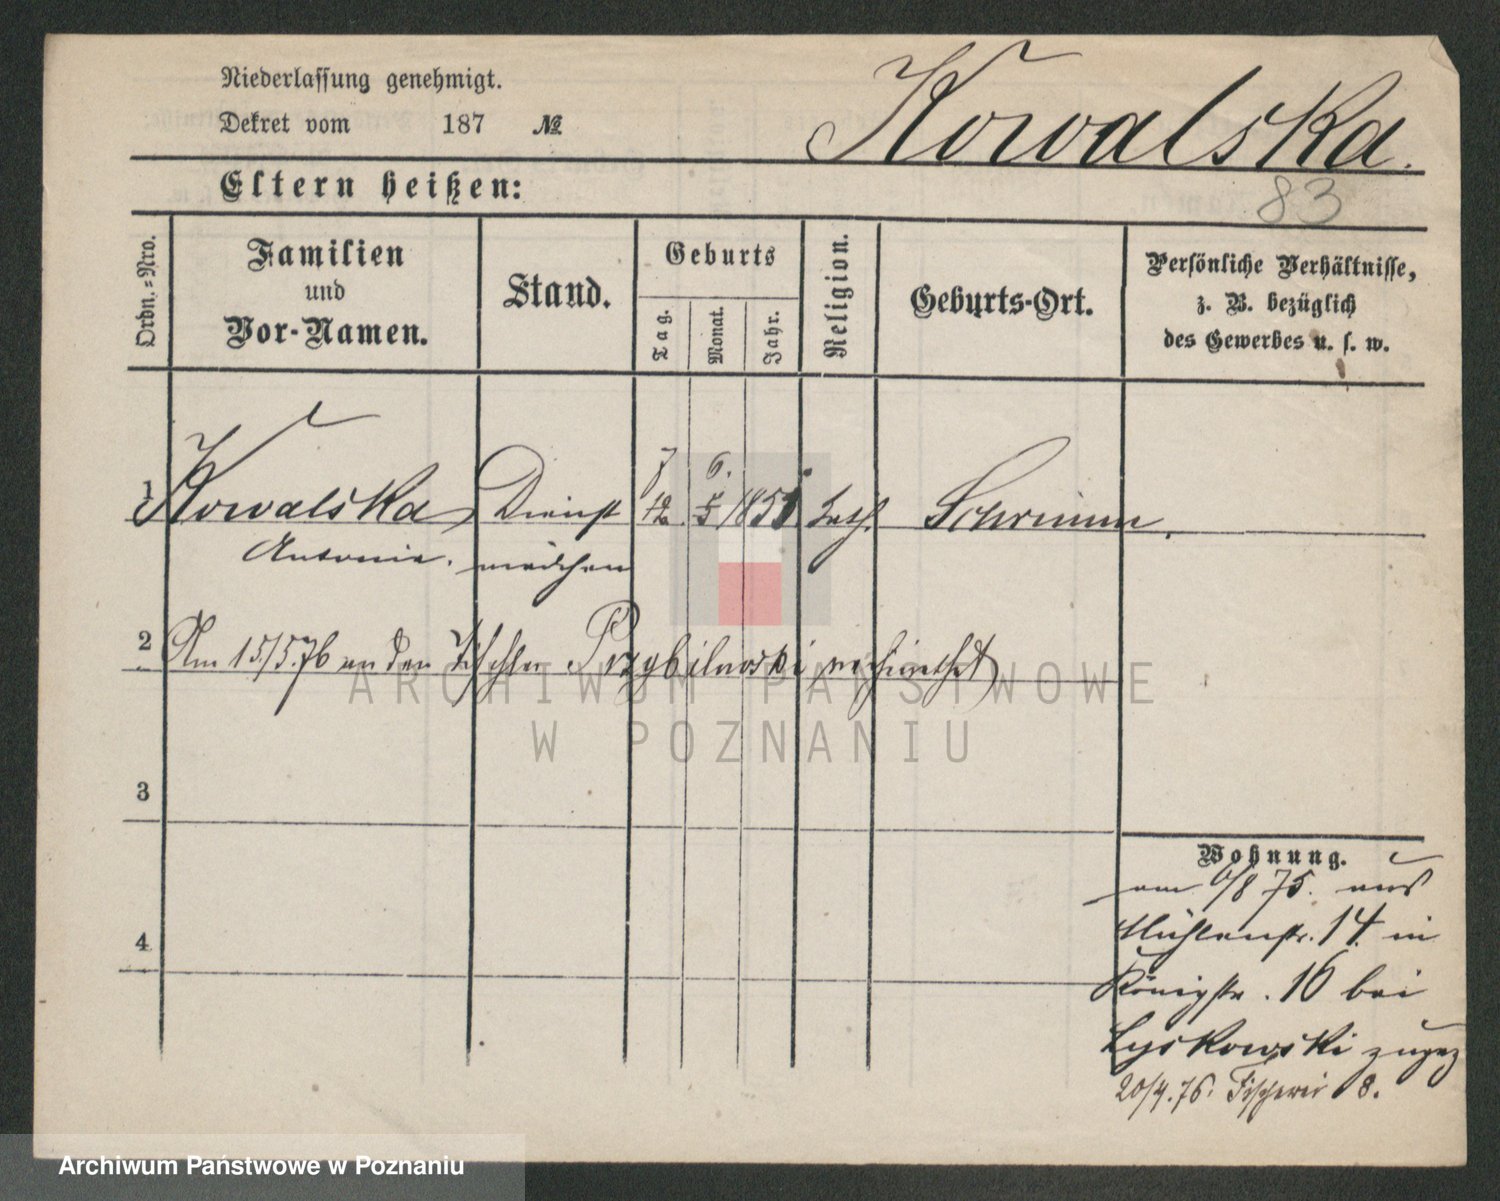 Niederlassung genehmigt.
Dekret vom 187 №
Kowalska.
83
Eltern heißen:
Ordn.=Nro.
Familien
und
Vor-Namen.
Stand.
Geburts
Tag.
Monat.
Jahr.
Religion.
Geburts-Ort.
Persönliche Verhältnisse,
z. B. bezüglich
des Gewerbes u. s. w.
7 6.
1 Kowalska Dienst 12. 5 185 kath. Schrimm.
Antonie. mädchen
2 Am 15/5.76 an den Tischler Przybilwski verheirathet
3
4
Wohnung.
am 6/8 75. aus
Mühlenstr. 14. in
Königstr. 16 bei
Lyskowski zugez
20/4.76. Fischerei 8.
ARCHIWUM PAŃSTWOWE
W POZNANIU
Archiwum Państwowe w Poznaniu